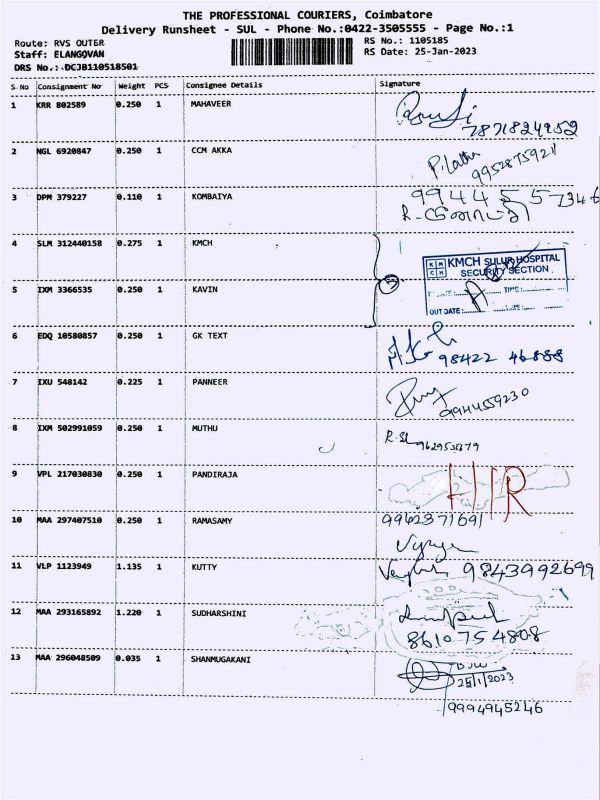 THE PROFESSIONAL COURIERS, Coimbatore
Delivery Runsheet - SUL - Phone No.:0422-3505555 - Page No.:1
Route: RVS OUTER RS No.: 1105185
Staff: ELANGOVAN RS Date: 25-Jan-2023
DRS No.: DCJB110518501
S No Consignment No Weight PCS Consignee Details Signature
1 KRR 802589 0.250 1 MAHAVEER
7871824952
2 NGL 6920847 0.250 1 CCM AKKA
P. Latha
9952875921
3 DPM 379227 0.110 1 KOMBAIYA
99445 57346
4 SLM 312440158 0.275 1 KMCH
KMCH SULUR HOSPITAL
SECURITY SECTION
OUT DATE:
5 IXM 3366535 0.250 1 KAVIN
6 EDQ 10580857 0.250 1 GK TEXT
98422 46888
7 IXU 548142 0.225 1 PANNEER
9944559230
8 IXM 502991059 0.250 1 MUTHU
9 VPL 217030830 0.250 1 PANDIRAJA
10 MAA 297407510 0.250 1 RAMASAMY
9942371691
11 VLP 1123949 1.135 1 KUTTY
9843992699
12 MAA 293165892 1.220 1 SUDHARSHINI
8610754808
13 MAA 296048509 0.035 1 SHANMUGAKANI
25/1/2023
9994945246